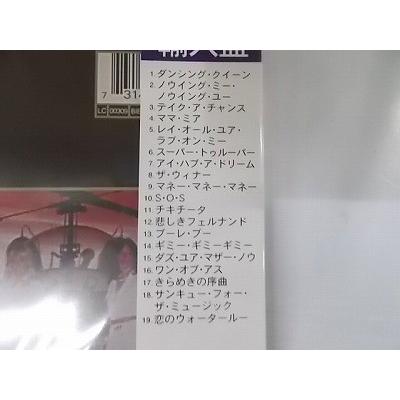 輸入盤
1. ダンシング・クイーン
2. ノウイング・ミー・
ノウイング・ユー
3. テイク・ア・チャンス
4. ママ・ミア
5. レイ・オール・ユア・
ラブ・オン・ミー
6. スーパー・トゥルーパー
7. アイ・ハブ・ア・ドリーム
8. ザ・ウィナー
9. マネー・マネー・マネー
10. S・O・S
11. チキチータ
12. 悲しきフェルナンド
13. ブーレ・ブー
14. ギミー・ギミーギミー
15. ダズ・ユア・マザー・ノウ
16. ワン・オブ・アス
17. きらめきの序曲
18. サンキュー・フォー・
ザ・ミュージック
19. 恋のウォータールー
7 314
LC 00309